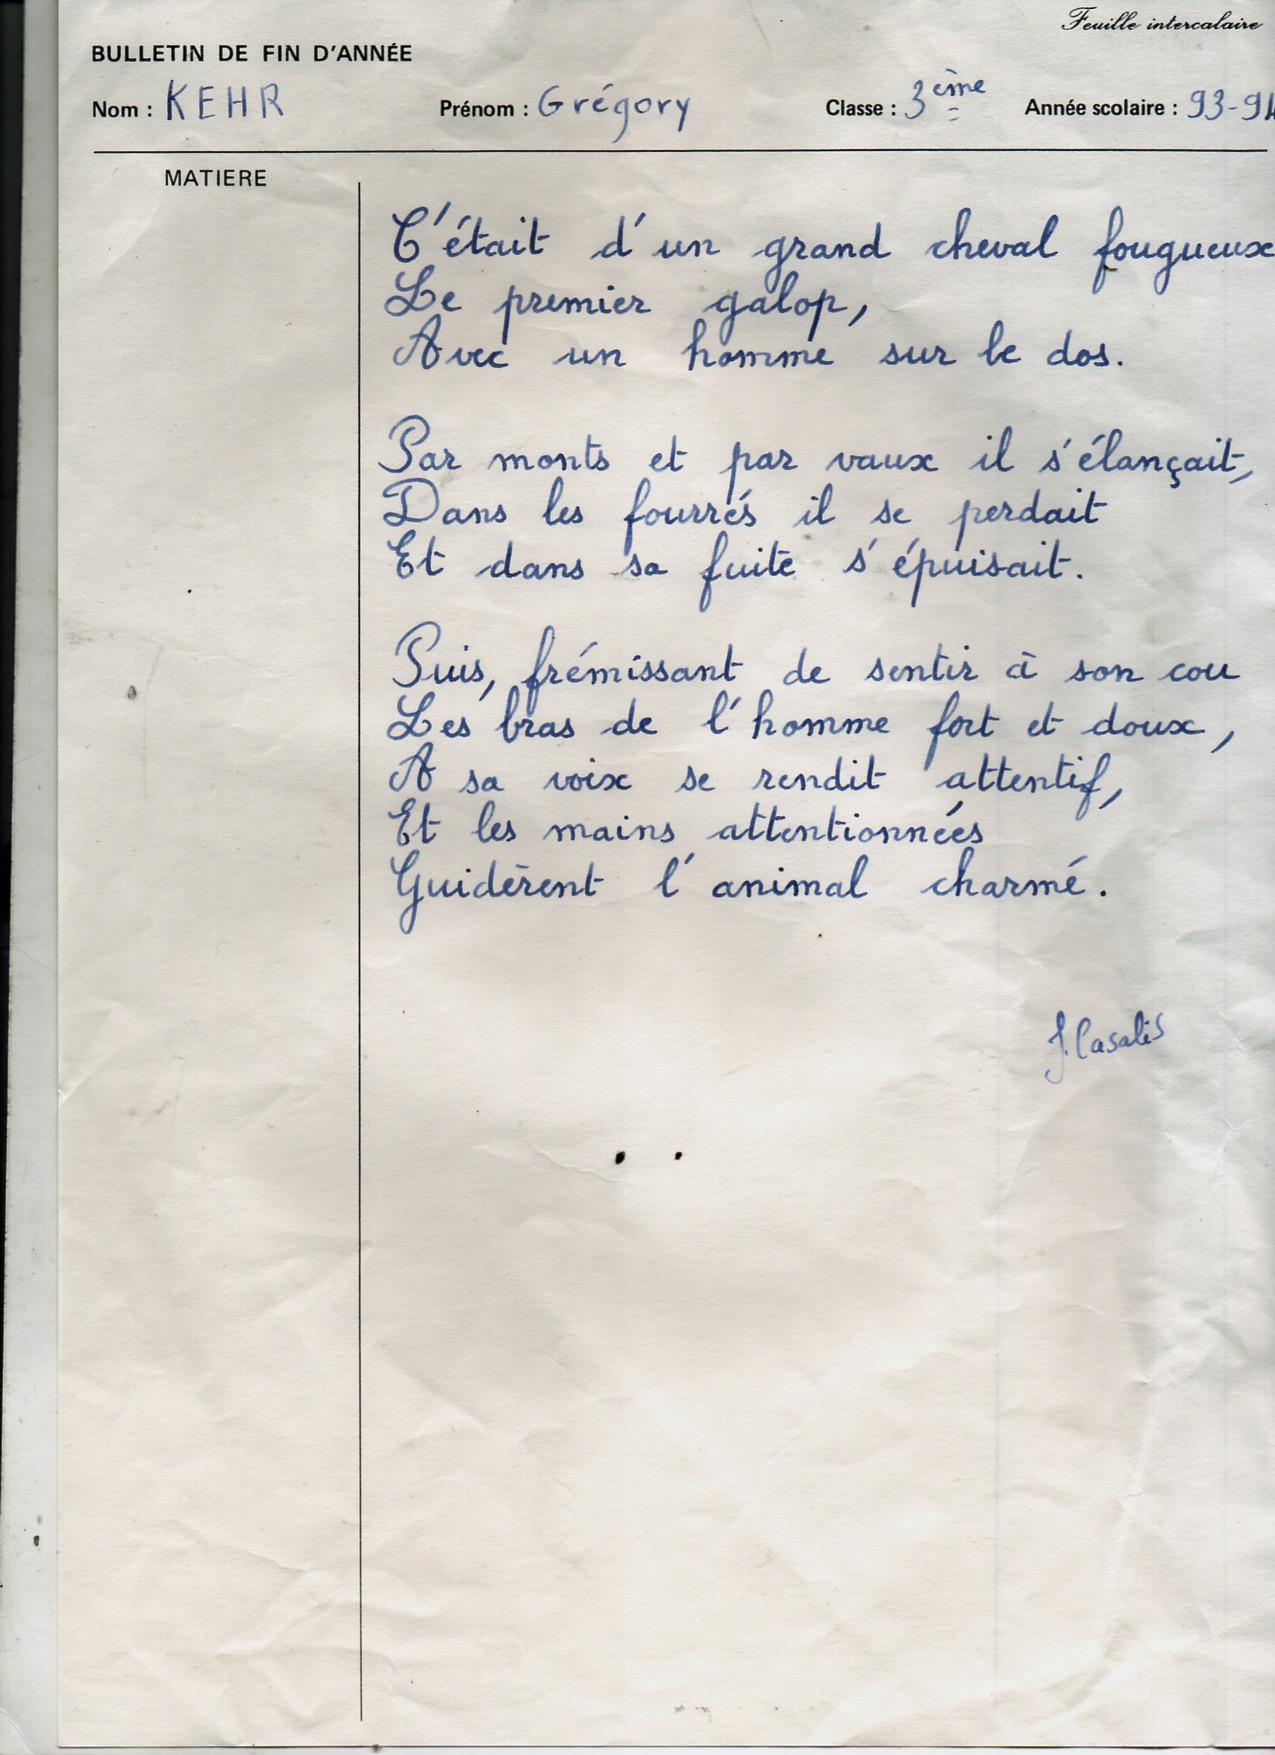 Feuille intercalaire
BULLETIN DE FIN D'ANNÉE
Nom : KEHR Prénom : Grégory Classe : 3ème Année scolaire : 93-94
MATIERE
C'était d'un grand cheval fougueux
Le premier galop,
Avec un homme sur le dos.
Par monts et par vaux il s'élançait,
Dans les fourrés il se perdait
Et dans sa fuite s'épuisait.
Puis, frémissant de sentir à son cou
Les bras de l'homme fort et doux,
A sa voix se rendit attentif,
Et les mains attentionnées
Guidèrent l'animal charmé.
J. Casalis